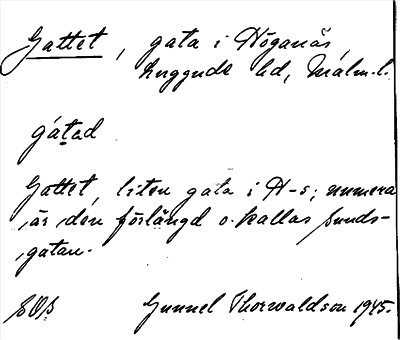 Gattet, gata i Höganäs,
Luggude hd, Malm. l.
gátad
Gattet, liten gata i H-s; numera
är den förlängd o. kallas Sunds-
gatan.
Gunnel Thorwaldson 1945.